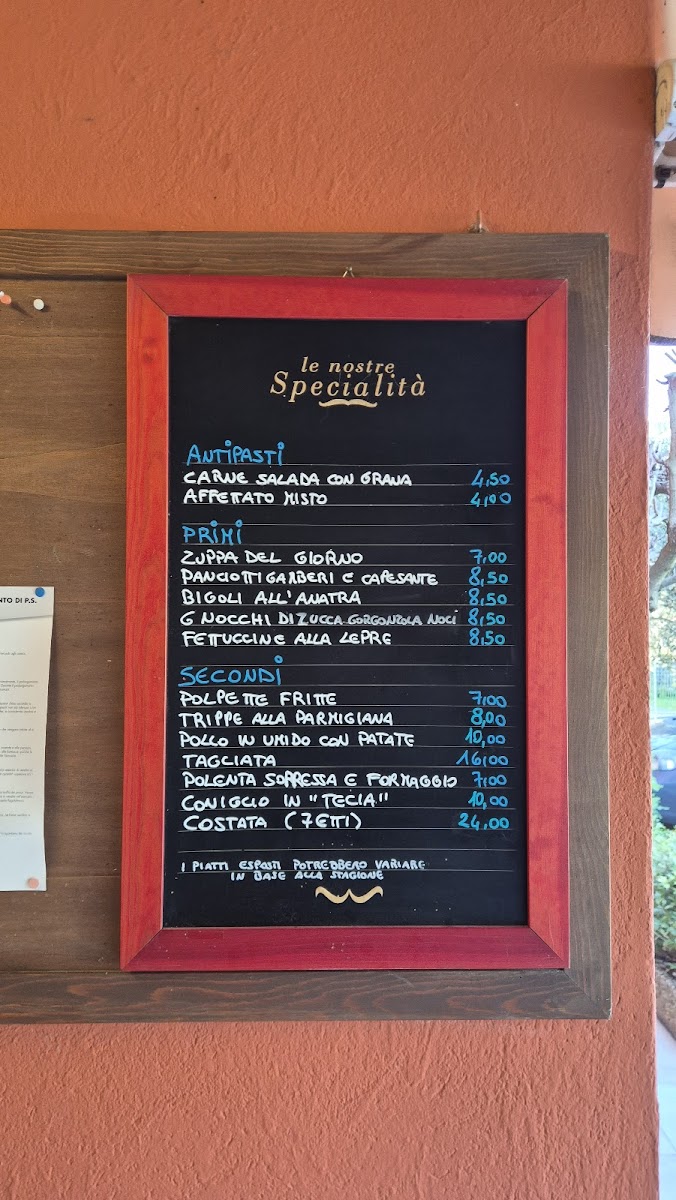 le nostre
Specialità
ANTIPASTI
CARNE SALADA CON GRANA 4,50
AFFETTATO MISTO 4,00
PRIMI
ZUPPA DEL GIORNO 7,00
PANCIOTTI GAMBERI E CAPESANTE 8,50
BIGOLI ALL'ANATRA 8,50
GNOCCHI DI ZUCCA GORGONZOLA NOCI 8,50
FETTUCCINE ALLA LEPRE 8,50
SECONDI
POLPETTE FRITTE 7,00
TRIPPE ALLA PARMIGIANA 8,00
POLLO IN UMIDO CON PATATE 10,00
TAGLIATA 16,00
POLENTA SOPRESSA E FORMAGGIO 7,00
CONIGLIO IN "TECIA" 10,00
COSTATA (7 ETTI) 24,00
I PIATTI ESPOSTI POTREBBERO VARIARE
IN BASE ALLA STAGIONE
NTO DI P.S.